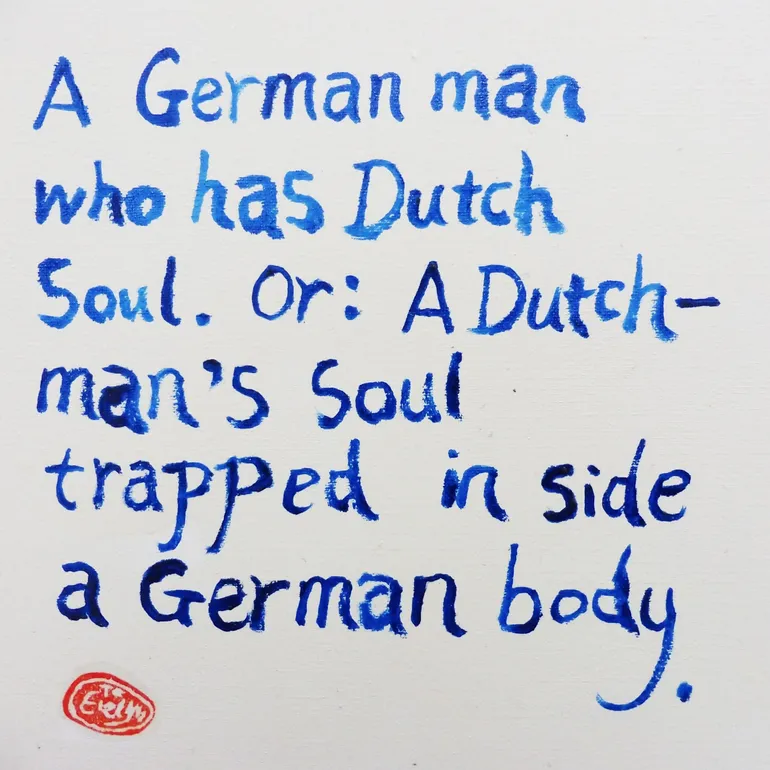 A German man
who has Dutch
Soul. Or: A Dutch-
man's Soul
trapped in side
a German body.
Evelyn